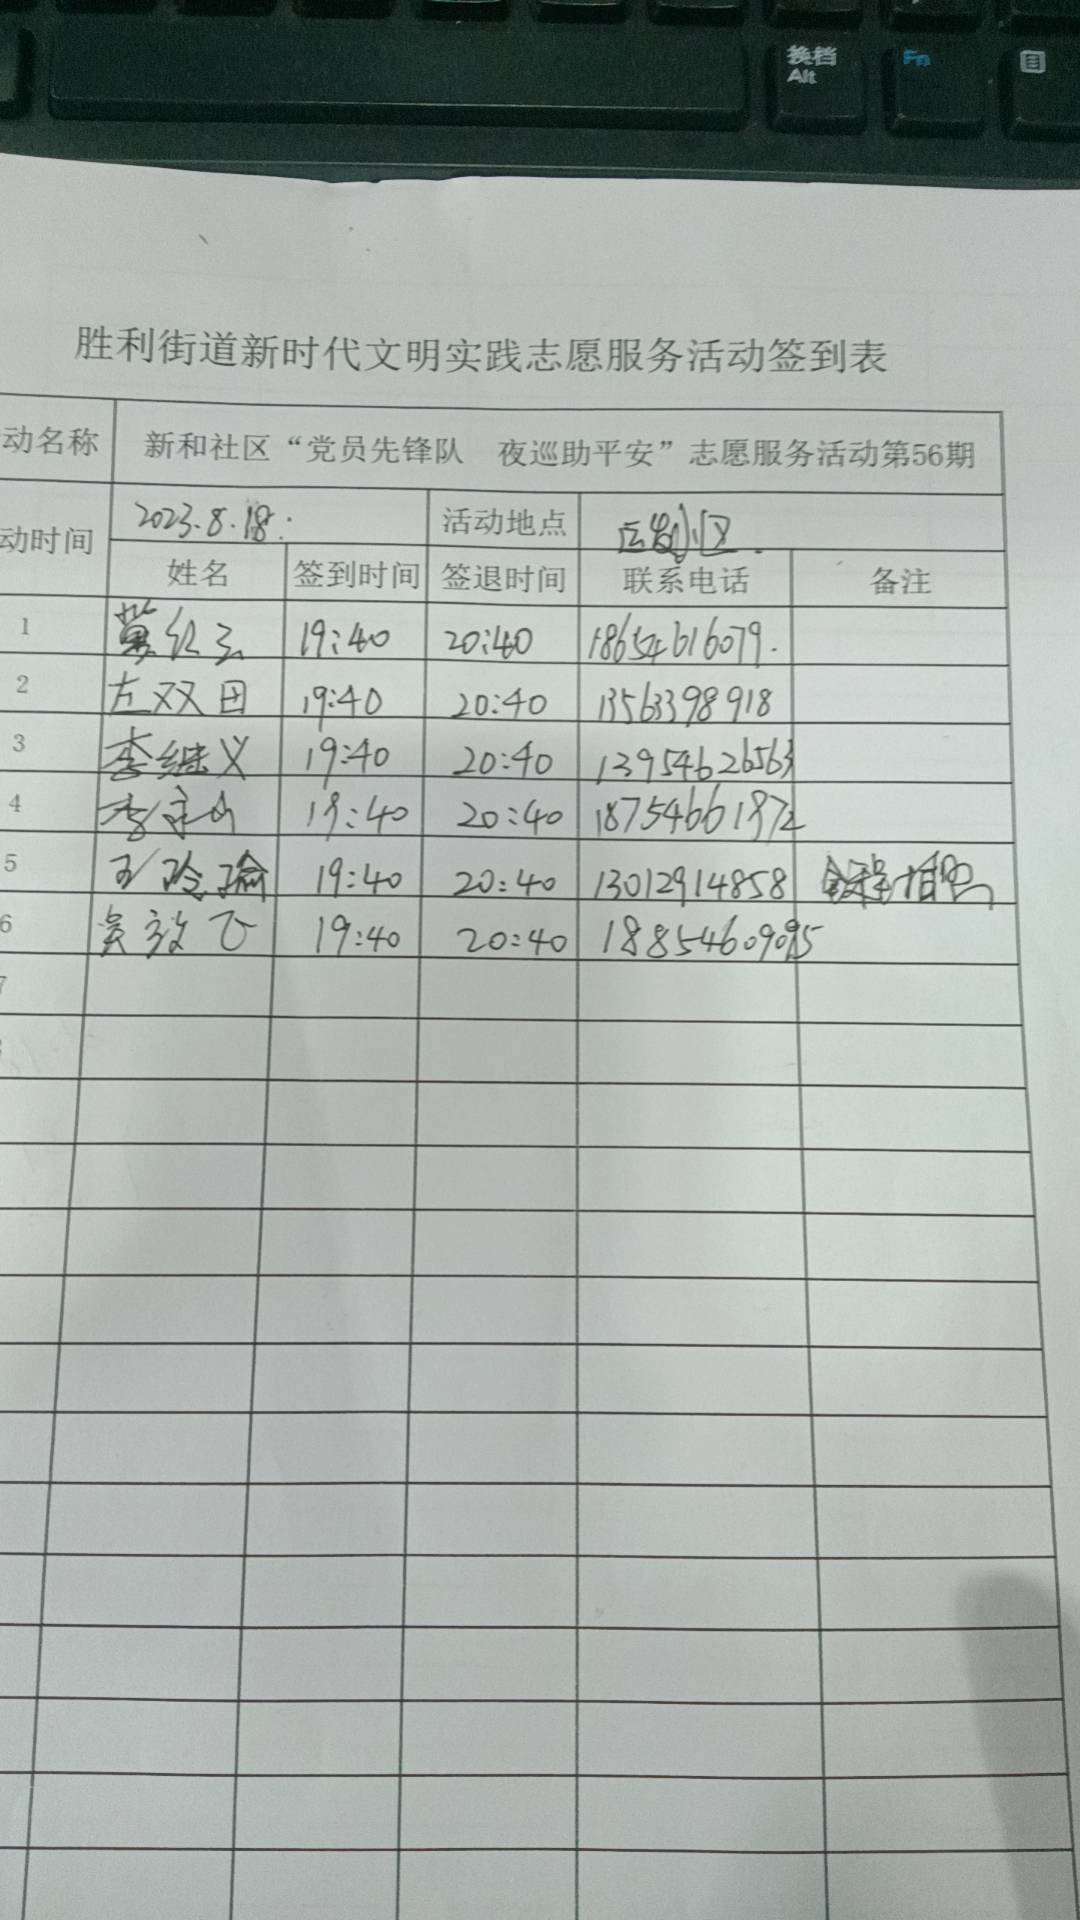 换档 Fn
Alt
胜利街道新时代文明实践志愿服务活动签到表
动名称 新和社区“党员先锋队 夜巡助平安”志愿服务活动第56期
动时间 2023.8.18. 活动地点 小区.
姓名 签到时间 签退时间 联系电话 备注
1 19:40 20:40 18654616079.
2 左双田 19:40 20:40 13563398918
3 李继义 19:40 20:40 13954626563
4 李 19:40 20:40 18754661372
5 王玲瑜 19:40 20:40 13012914858 全程拍照
6 吴效飞 19:40 20:40 18854609095
7